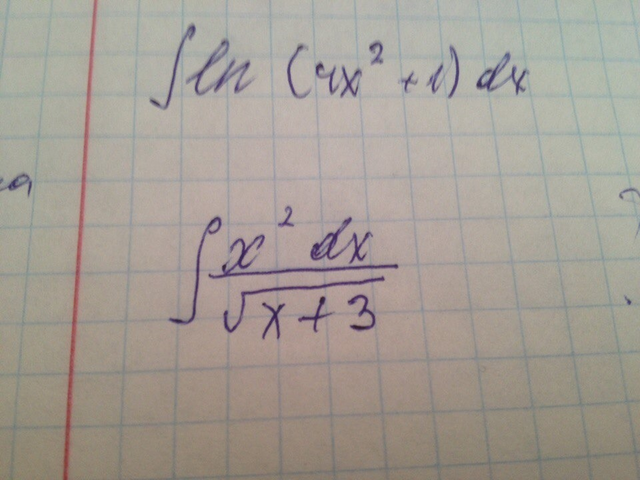 ∫ ln (4x² + 1) dx
∫ x² dx / √(x + 3)